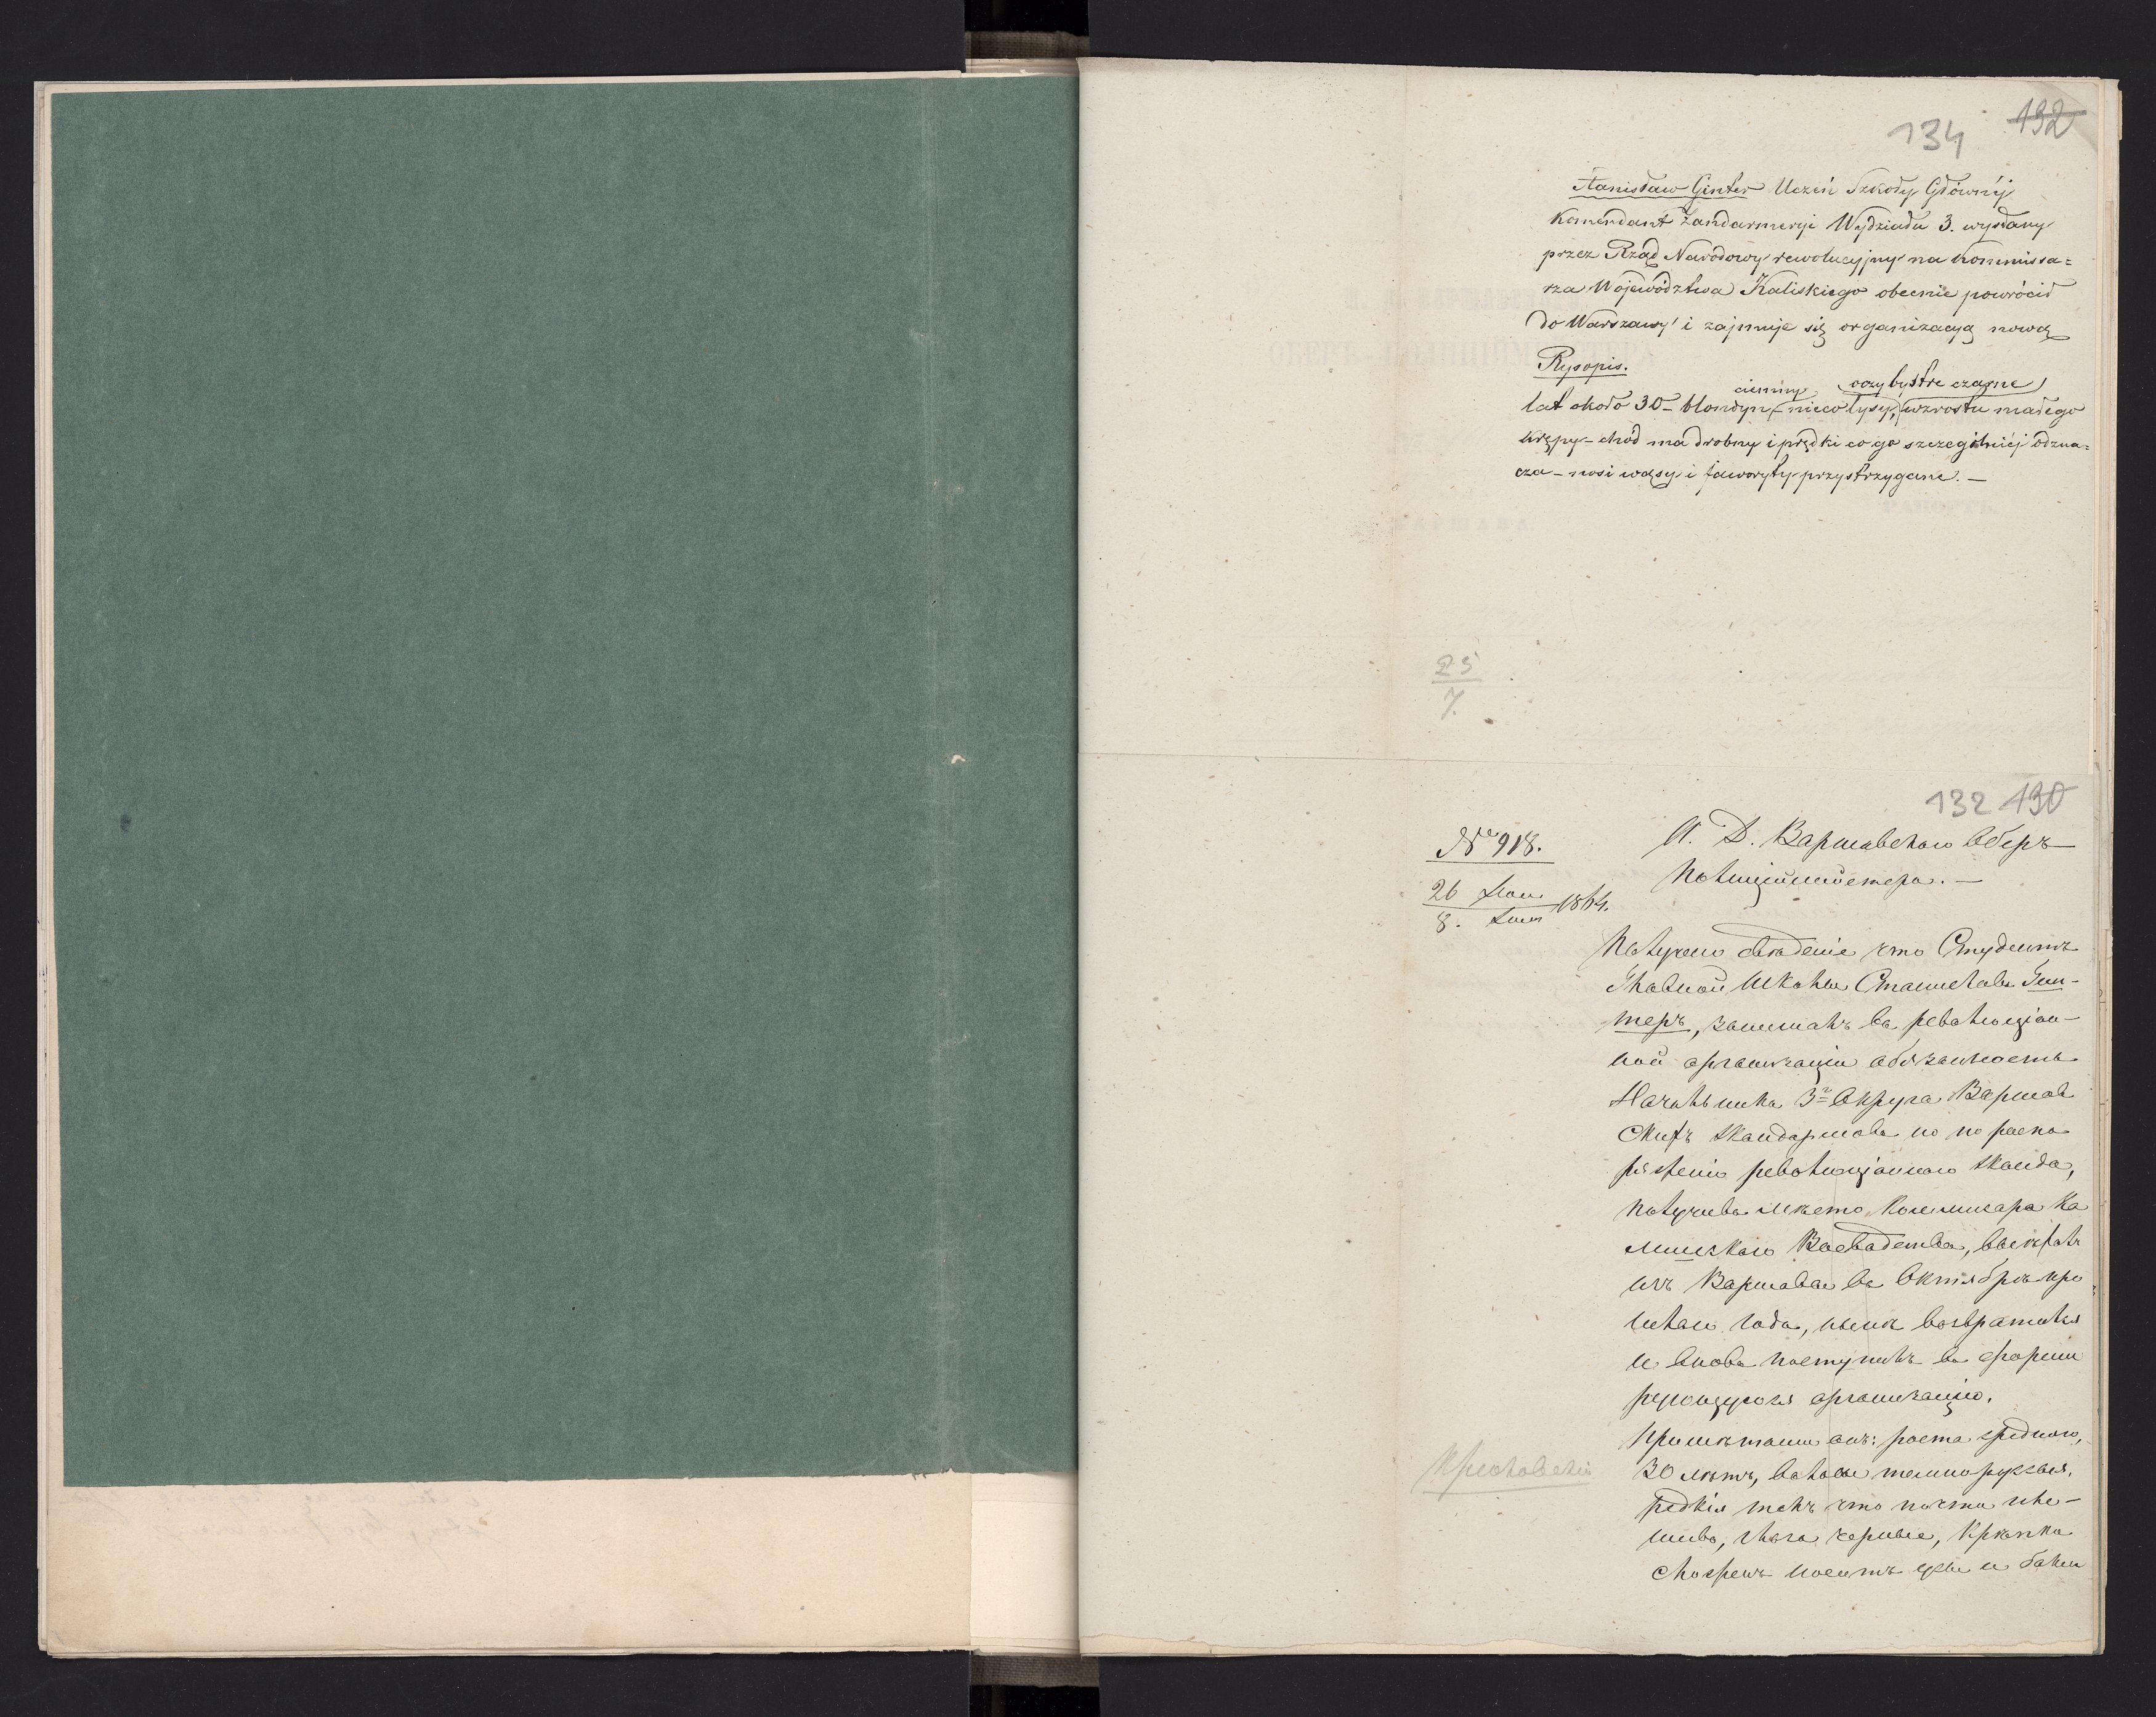 134 192
Stanisław Ginter Uczeń Szkoły Głównéj
Komendant Żandarmeryi Wydziału 3. wysłany
przez Rząd Narodowy rewolucyjny na Kommissa=
rza Województwa Kaliskiego obecnie powrócił
do Warszawy i zajmuje się organizacyą nową
Rysopis.
ciemny oczy bystre czarne
lat około 30 – blondyn, – nieco łysy, wzrostu małego
krępy – chód ma drobny i prędki co go szczególniéj odzna=
cza – nosi wąsy i faworyty przystrzygane. —
25
7.
132 190
№ 918.
26
8. 1864.
И. Д. Варшавскаго Оберъ-
Полиціймейстера. —
Получено свѣденіе что Студентъ
Главной Школы Станиславъ Гин-
теръ, занималъ въ революціон-
ной организаціи обязанность
Начальника 3го Округа Варшав
скихъ жандармовъ но по распо
ряженію революціоннаго жонда,
получивъ мѣсто Коммисара Ка
лишскаго Воеводства, выѣхалъ
изъ Варшавы въ Октябрѣ про
шлаго года, нынѣ возвратился
и вновь поступилъ въ форми
рующуюся организацію.
Примѣтами онъ: роста средняго,
30 лѣтъ, волосы темнорусые,
редкія такъ что почти пле-
шивъ, глаза черные, крѣпко
сложенъ носитъ усы и баки